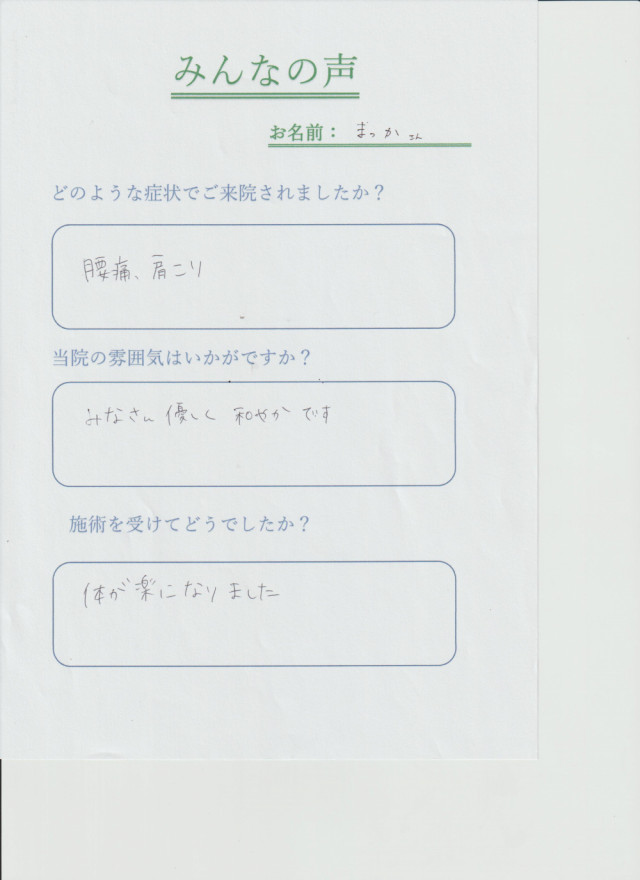 みんなの声
お名前： まっかさん
どのような症状でご来院されましたか？
腰痛、肩こり
当院の雰囲気はいかがですか？
みなさん優しく 和やかです
施術を受けてどうでしたか？
体が楽になりました